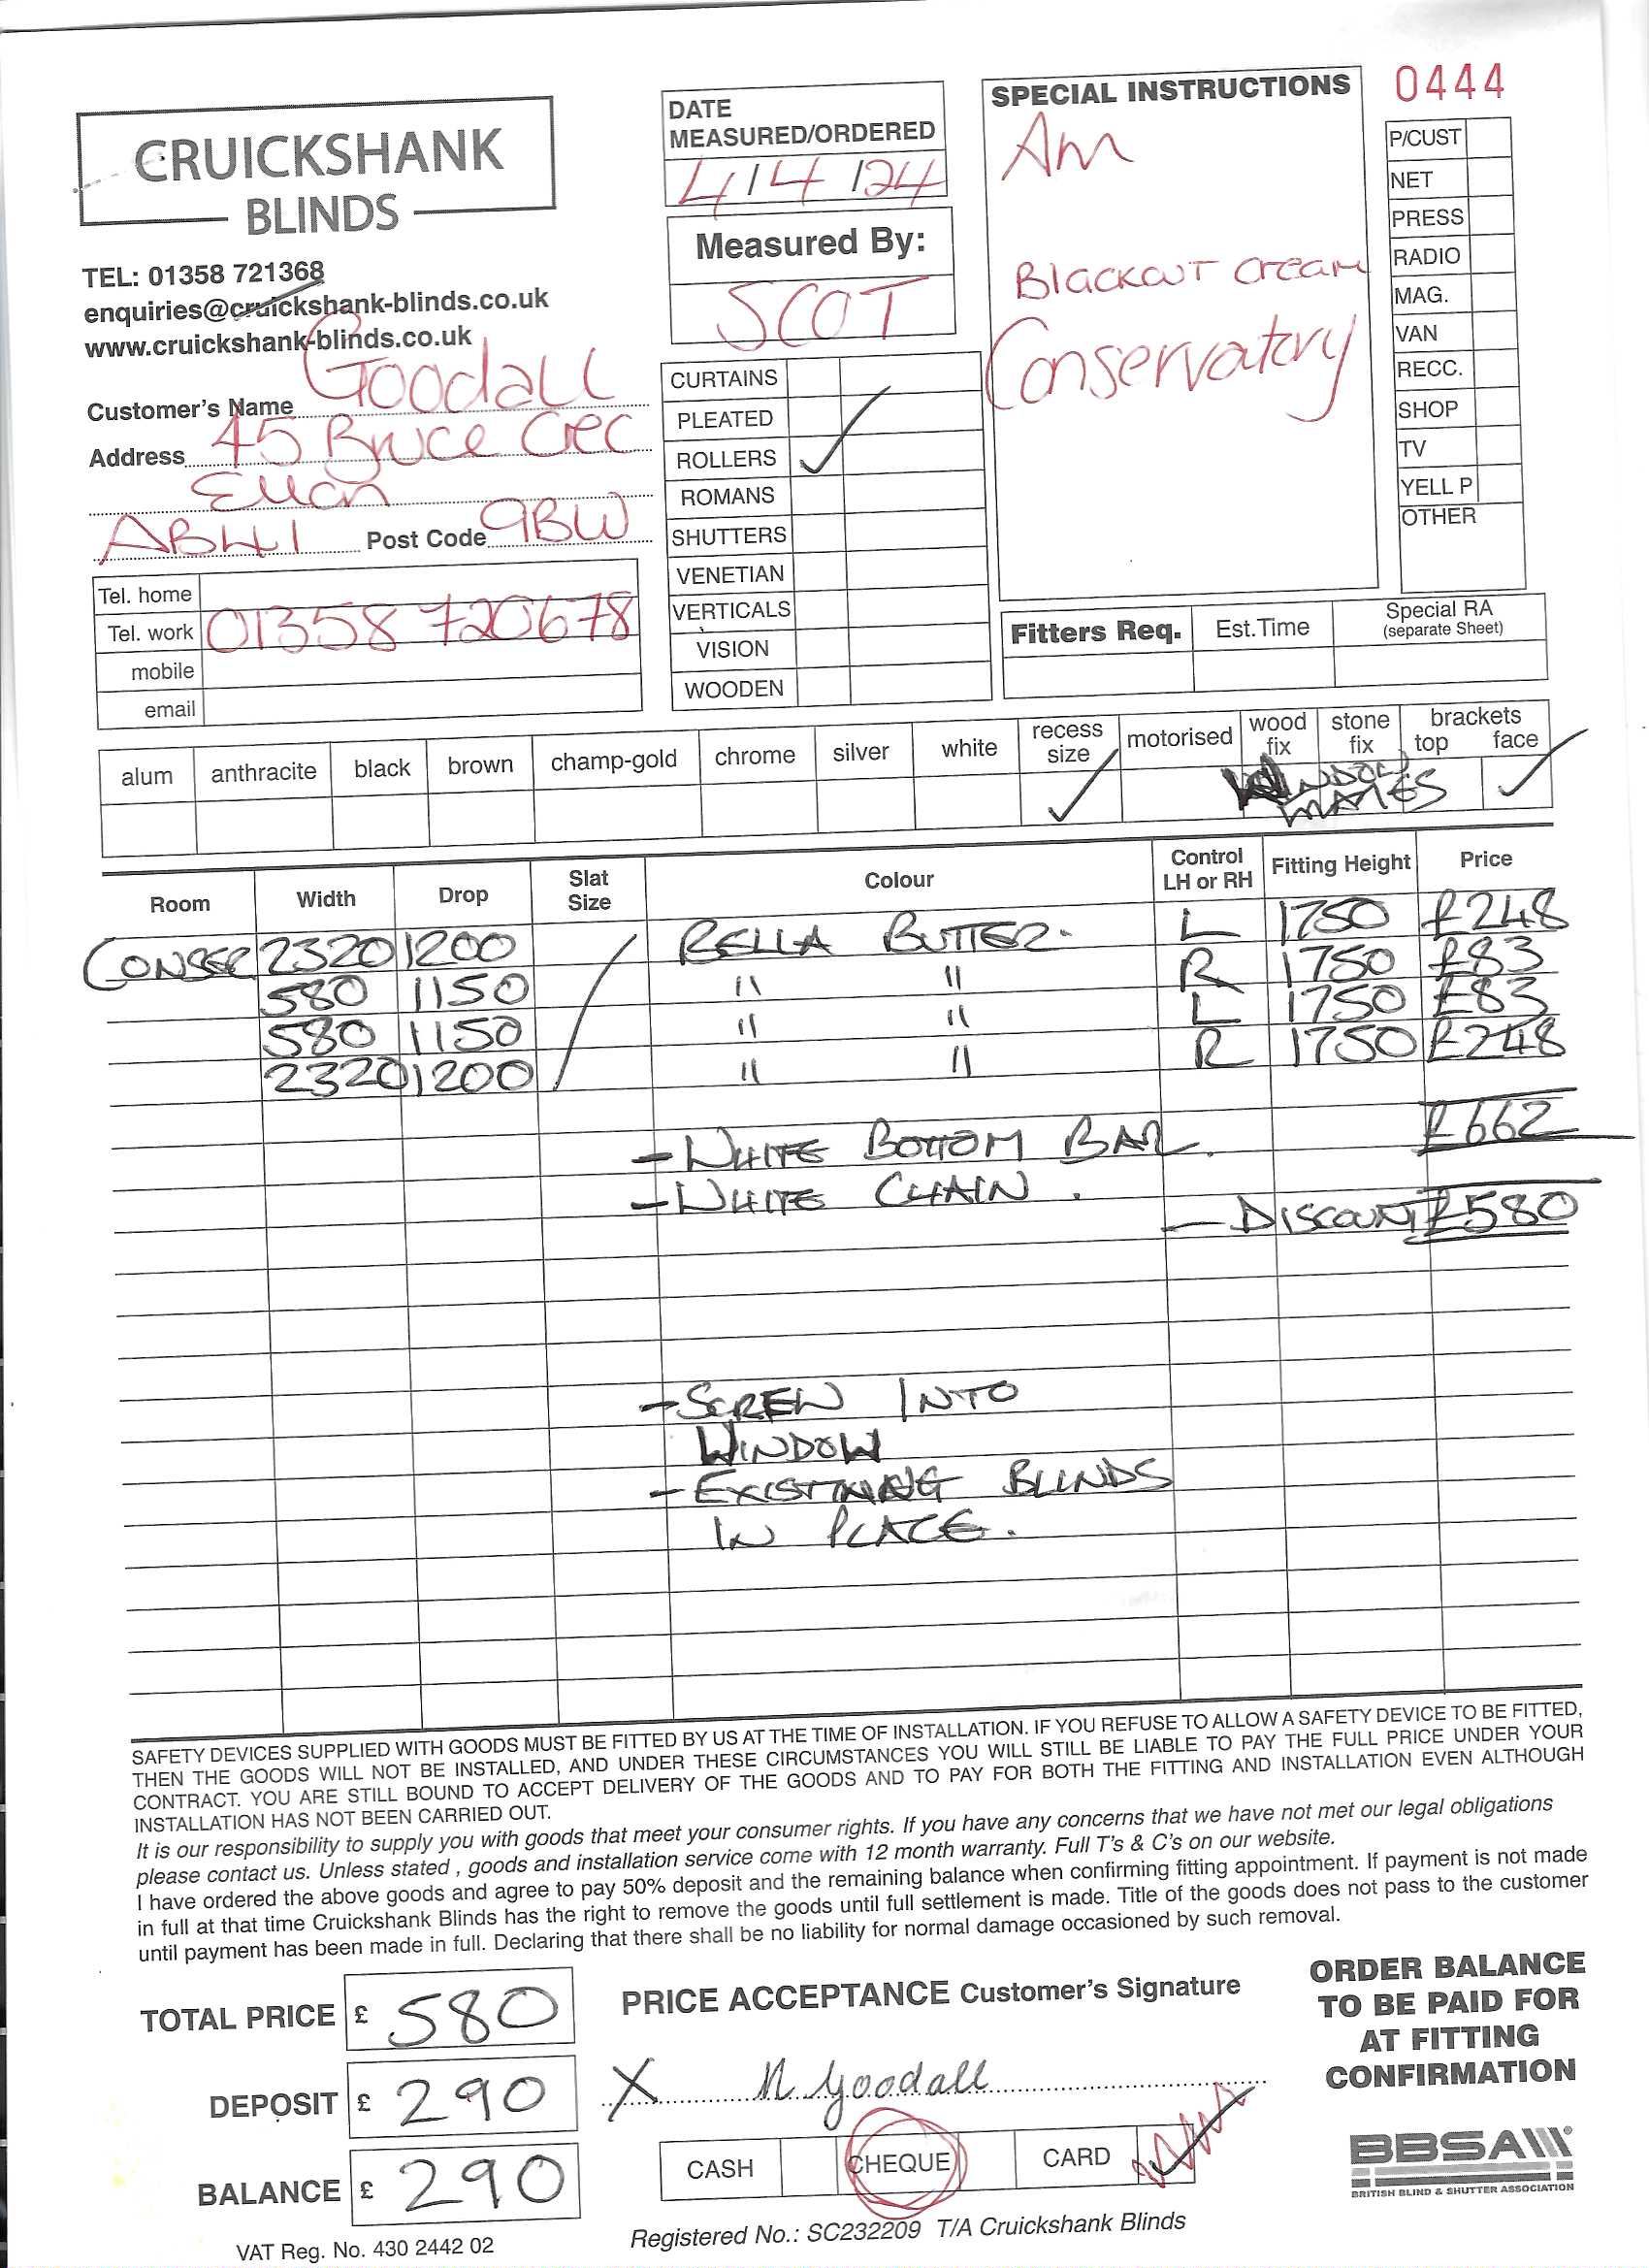 0444
CRUICKSHANK
BLINDS
TEL: 01358 721368
enquiries@cruickshank-blinds.co.uk
www.cruickshank-blinds.co.uk
Customer's Name Goodall
Address 45 Bruce Crec
Ellon
AB41 Post Code 9BW
Tel. home
Tel. work 01358 720678
mobile
email
DATE
MEASURED/ORDERED
4/4/24
Measured By:
SCOT
CURTAINS
PLEATED
ROLLERS ✓
ROMANS
SHUTTERS
VENETIAN
VERTICALS
VISION
WOODEN
SPECIAL INSTRUCTIONS
Am
Blackout cream
Conservatory
P/CUST
NET
PRESS
RADIO
MAG.
VAN
RECC.
SHOP
TV
YELL P
OTHER
Fitters Req. Est.Time Special RA
(separate Sheet)
alum anthracite black brown champ-gold chrome silver white recess size motorised wood fix stone fix brackets top face
✓ WINDOW ✓
Room Width Drop Slat Size Colour Control LH or RH Fitting Height Price
CONSER 2320 1200 BELLA BUTTER. L 1750 £248
580 1150 " " R 1750 £83
580 1150 " " L 1750 £83
2320 1200 " " R 1750 £248
£662
- WHITE BOTTOM BAR.
- WHITE CHAIN.
- DISCOUNT £580
- SCREW INTO
WINDOW
- EXISTING BLINDS
IN PLACE.
SAFETY DEVICES SUPPLIED WITH GOODS MUST BE FITTED BY US AT THE TIME OF INSTALLATION. IF YOU REFUSE TO ALLOW A SAFETY DEVICE TO BE FITTED,
THEN THE GOODS WILL NOT BE INSTALLED, AND UNDER THESE CIRCUMSTANCES YOU WILL STILL BE LIABLE TO PAY THE FULL PRICE UNDER YOUR
CONTRACT. YOU ARE STILL BOUND TO ACCEPT DELIVERY OF THE GOODS AND TO PAY FOR BOTH THE FITTING AND INSTALLATION EVEN ALTHOUGH
INSTALLATION HAS NOT BEEN CARRIED OUT.
It is our responsibility to supply you with goods that meet your consumer rights. If you have any concerns that we have not met our legal obligations
please contact us. Unless stated , goods and installation service come with 12 month warranty. Full T's & C's on our website.
I have ordered the above goods and agree to pay 50% deposit and the remaining balance when confirming fitting appointment. If payment is not made
in full at that time Cruickshank Blinds has the right to remove the goods until full settlement is made. Title of the goods does not pass to the customer
until payment has been made in full. Declaring that there shall be no liability for normal damage occasioned by such removal.
TOTAL PRICE £ 580
DEPOSIT £ 290
BALANCE £ 290
VAT Reg. No. 430 2442 02
PRICE ACCEPTANCE Customer's Signature
X N Goodall
CASH CHEQUE CARD ✓
Registered No.: SC232209 T/A Cruickshank Blinds
ORDER BALANCE
TO BE PAID FOR
AT FITTING
CONFIRMATION
BBSA
BRITISH BLIND & SHUTTER ASSOCIATION